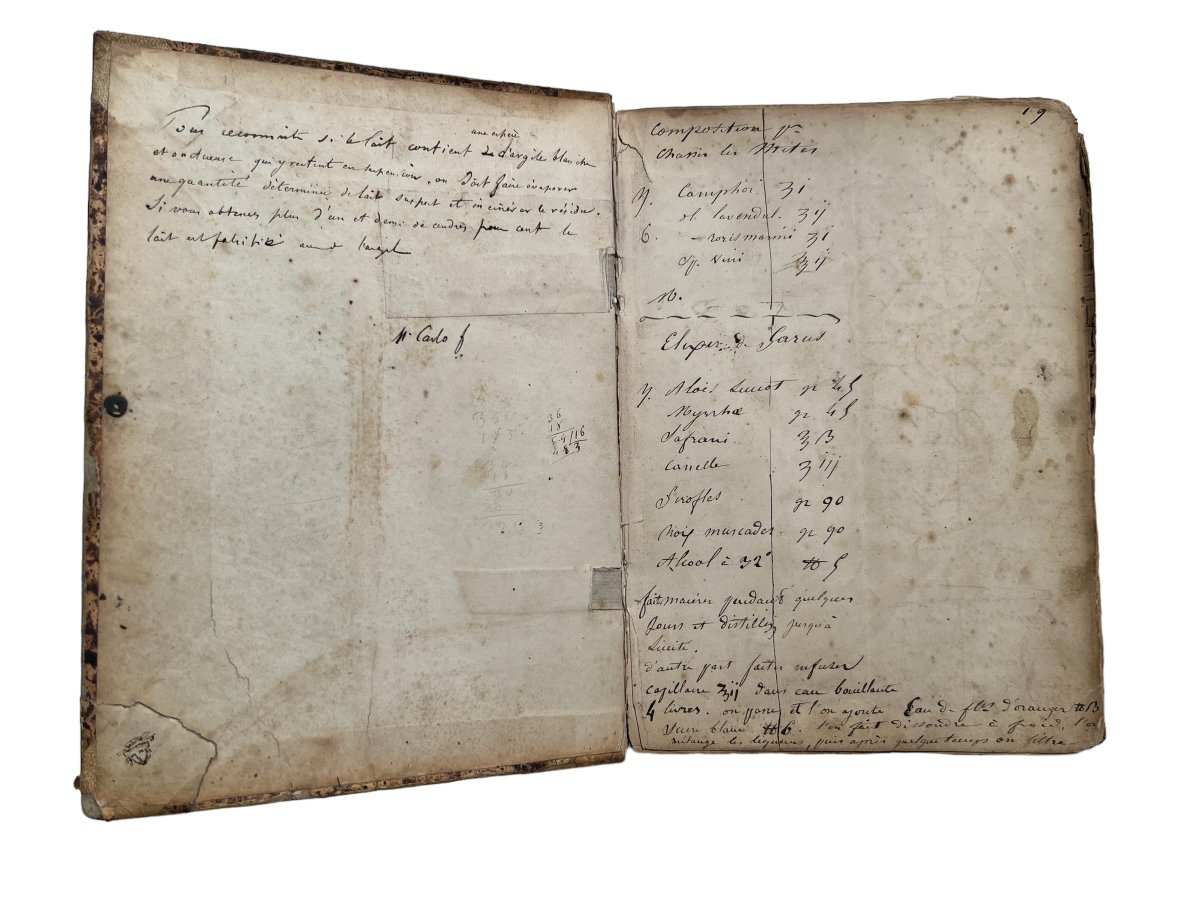 une espèce
Pour reconnaitre si le lait contient d'argile blanche
et onctueuse qui y restent en suspension, on doit faire évaporer
une quantité déterminée de lait suspect et incinérer le résidu.
Si vous obtenez plus d'un et demi de cendres pour cent le
lait est falsifié
Mr Carlo f
36
18
19
Composition pr
Chasser les Mites
Camphor ʒi
ol lavendul. ʒij
6. – rorismarini ʒi
Sp. Vini ʒij
M.
Elixir de Garus
Aloës Succot gr 45
Myrrhæ gr 45
Safrani ʒß
Canelle ʒiij
Girofles gr 90
Noix muscades gr 90
Alcool à 32° ℔ 5
faites macérer pendant quelques
jours et distillez jusqu'à
Siccité.
d'autre part faites infuser
capillaire ʒij dans eau bouillante
4 livres. on passe et l'on ajoute Eau de flrs d'oranger ℔ß
Sucre blanc ℔ 6. l'on fait dissoudre à froid. l'on
mélange les liqueurs, puis après quelque temps on filtre